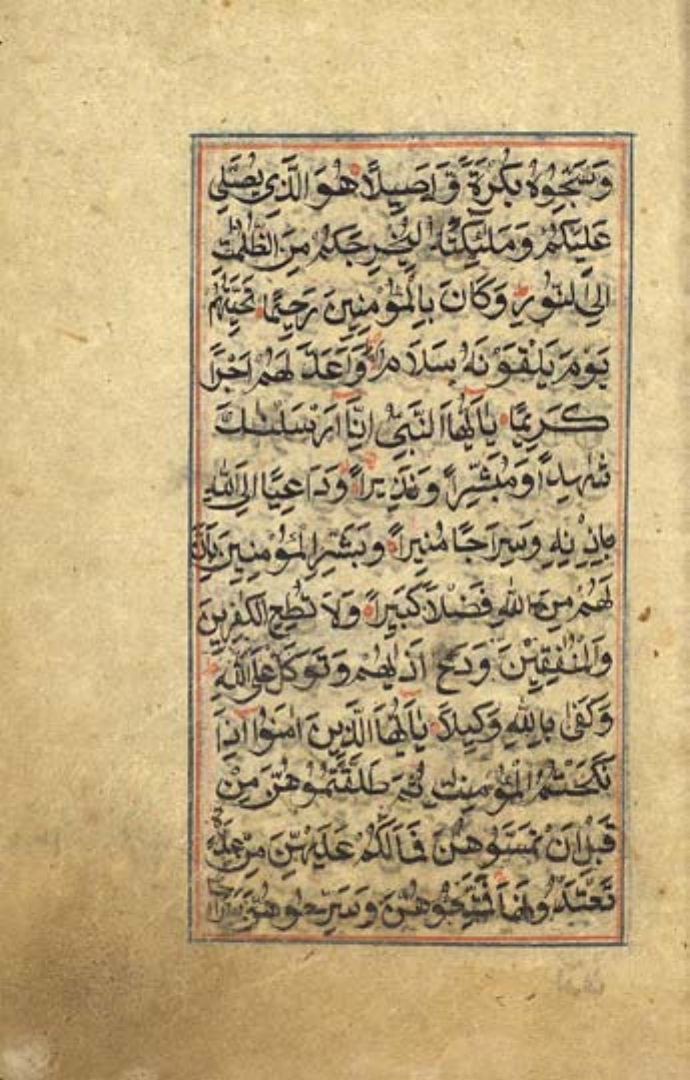 وَسَبِّحُوهُ بُكْرَةً وَّاَصِيلًا هُوَ الَّذِى يُصَلِّى
عَلَيْكُمْ وَمَلٰٓئِكَتُهُ لِيُخْرِجَكُمْ مِنَ الظُّلُمٰتِ
اِلَى النُّورِ وَكَانَ بِالْمُؤْمِنِينَ رَحِيمًا تَحِيَّتُهُمْ
يَوْمَ يَلْقَوْنَهُ سَلَامٌ وَاَعَدَّ لَهُمْ اَجْرًا
كَرِيمًا يٰٓاَيُّهَا النَّبِىُّ اِنَّا اَرْسَلْنٰكَ
شٰهِدًا وَمُبَشِّرًا وَنَذِيرًا وَدَاعِيًا اِلَى اللّٰهِ
بِاِذْنِهِ وَسِرَاجًا مُنِيرًا وَبَشِّرِ الْمُؤْمِنِينَ بِاَنَّ
لَهُمْ مِنَ اللّٰهِ فَضْلًا كَبِيرًا وَلَا تُطِعِ الْكٰفِرِينَ
وَالْمُنٰفِقِينَ وَدَعْ اَذٰىهُمْ وَتَوَكَّلْ عَلَى اللّٰهِ
وَكَفٰى بِاللّٰهِ وَكِيلًا يٰٓاَيُّهَا الَّذِينَ اٰمَنُوا اِذَا
نَكَحْتُمُ الْمُؤْمِنٰتِ ثُمَّ طَلَّقْتُمُوهُنَّ مِنْ
قَبْلِ اَنْ تَمَسُّوهُنَّ فَمَا لَكُمْ عَلَيْهِنَّ مِنْ عِدَّةٍ
تَعْتَدُّونَهَا فَمَتِّعُوهُنَّ وَسَرِّحُوهُنَّ سَرَاحًا